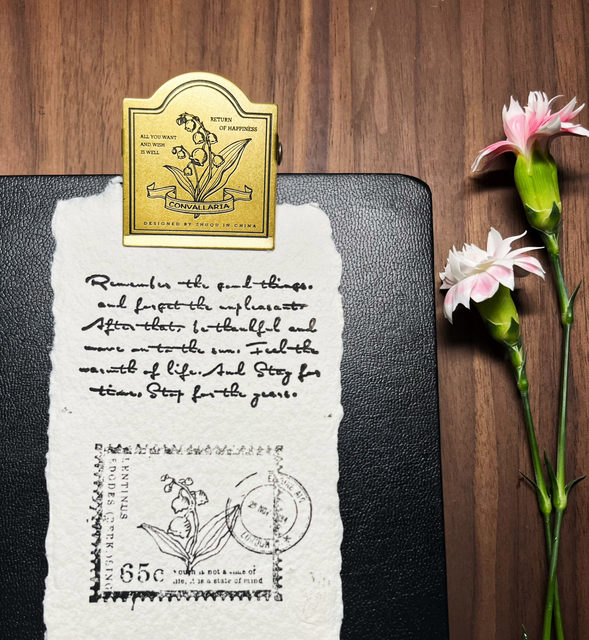 RETURN
OF HAPPINESS
ALL YOU WANT
AND WISH
IS WELL
CONVALLARIA
DESIGNED BY ZHUQU IN CHINA
Remember the good things.
and forget the unpleasant.
After that, be thankful and
move on to the sun. Feel the
warmth of life. And Stay for
time. Stop for the years.
65c
Youth is not a time of
life, it is a state of mind
LONDON